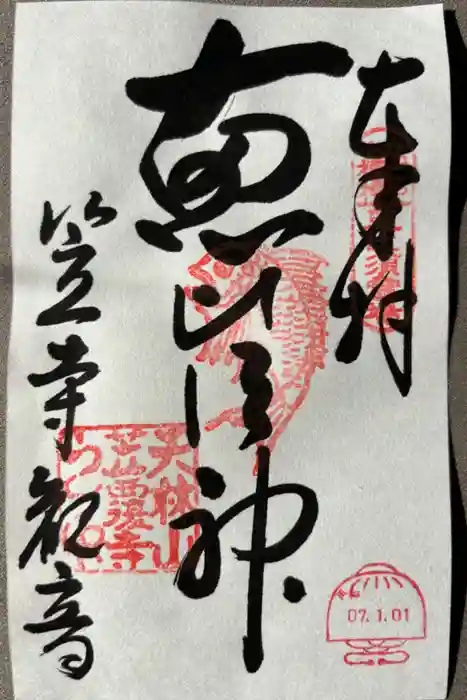 奉拝
恵比須神
笠寺観音
天林山
笠覆寺
07.1.01